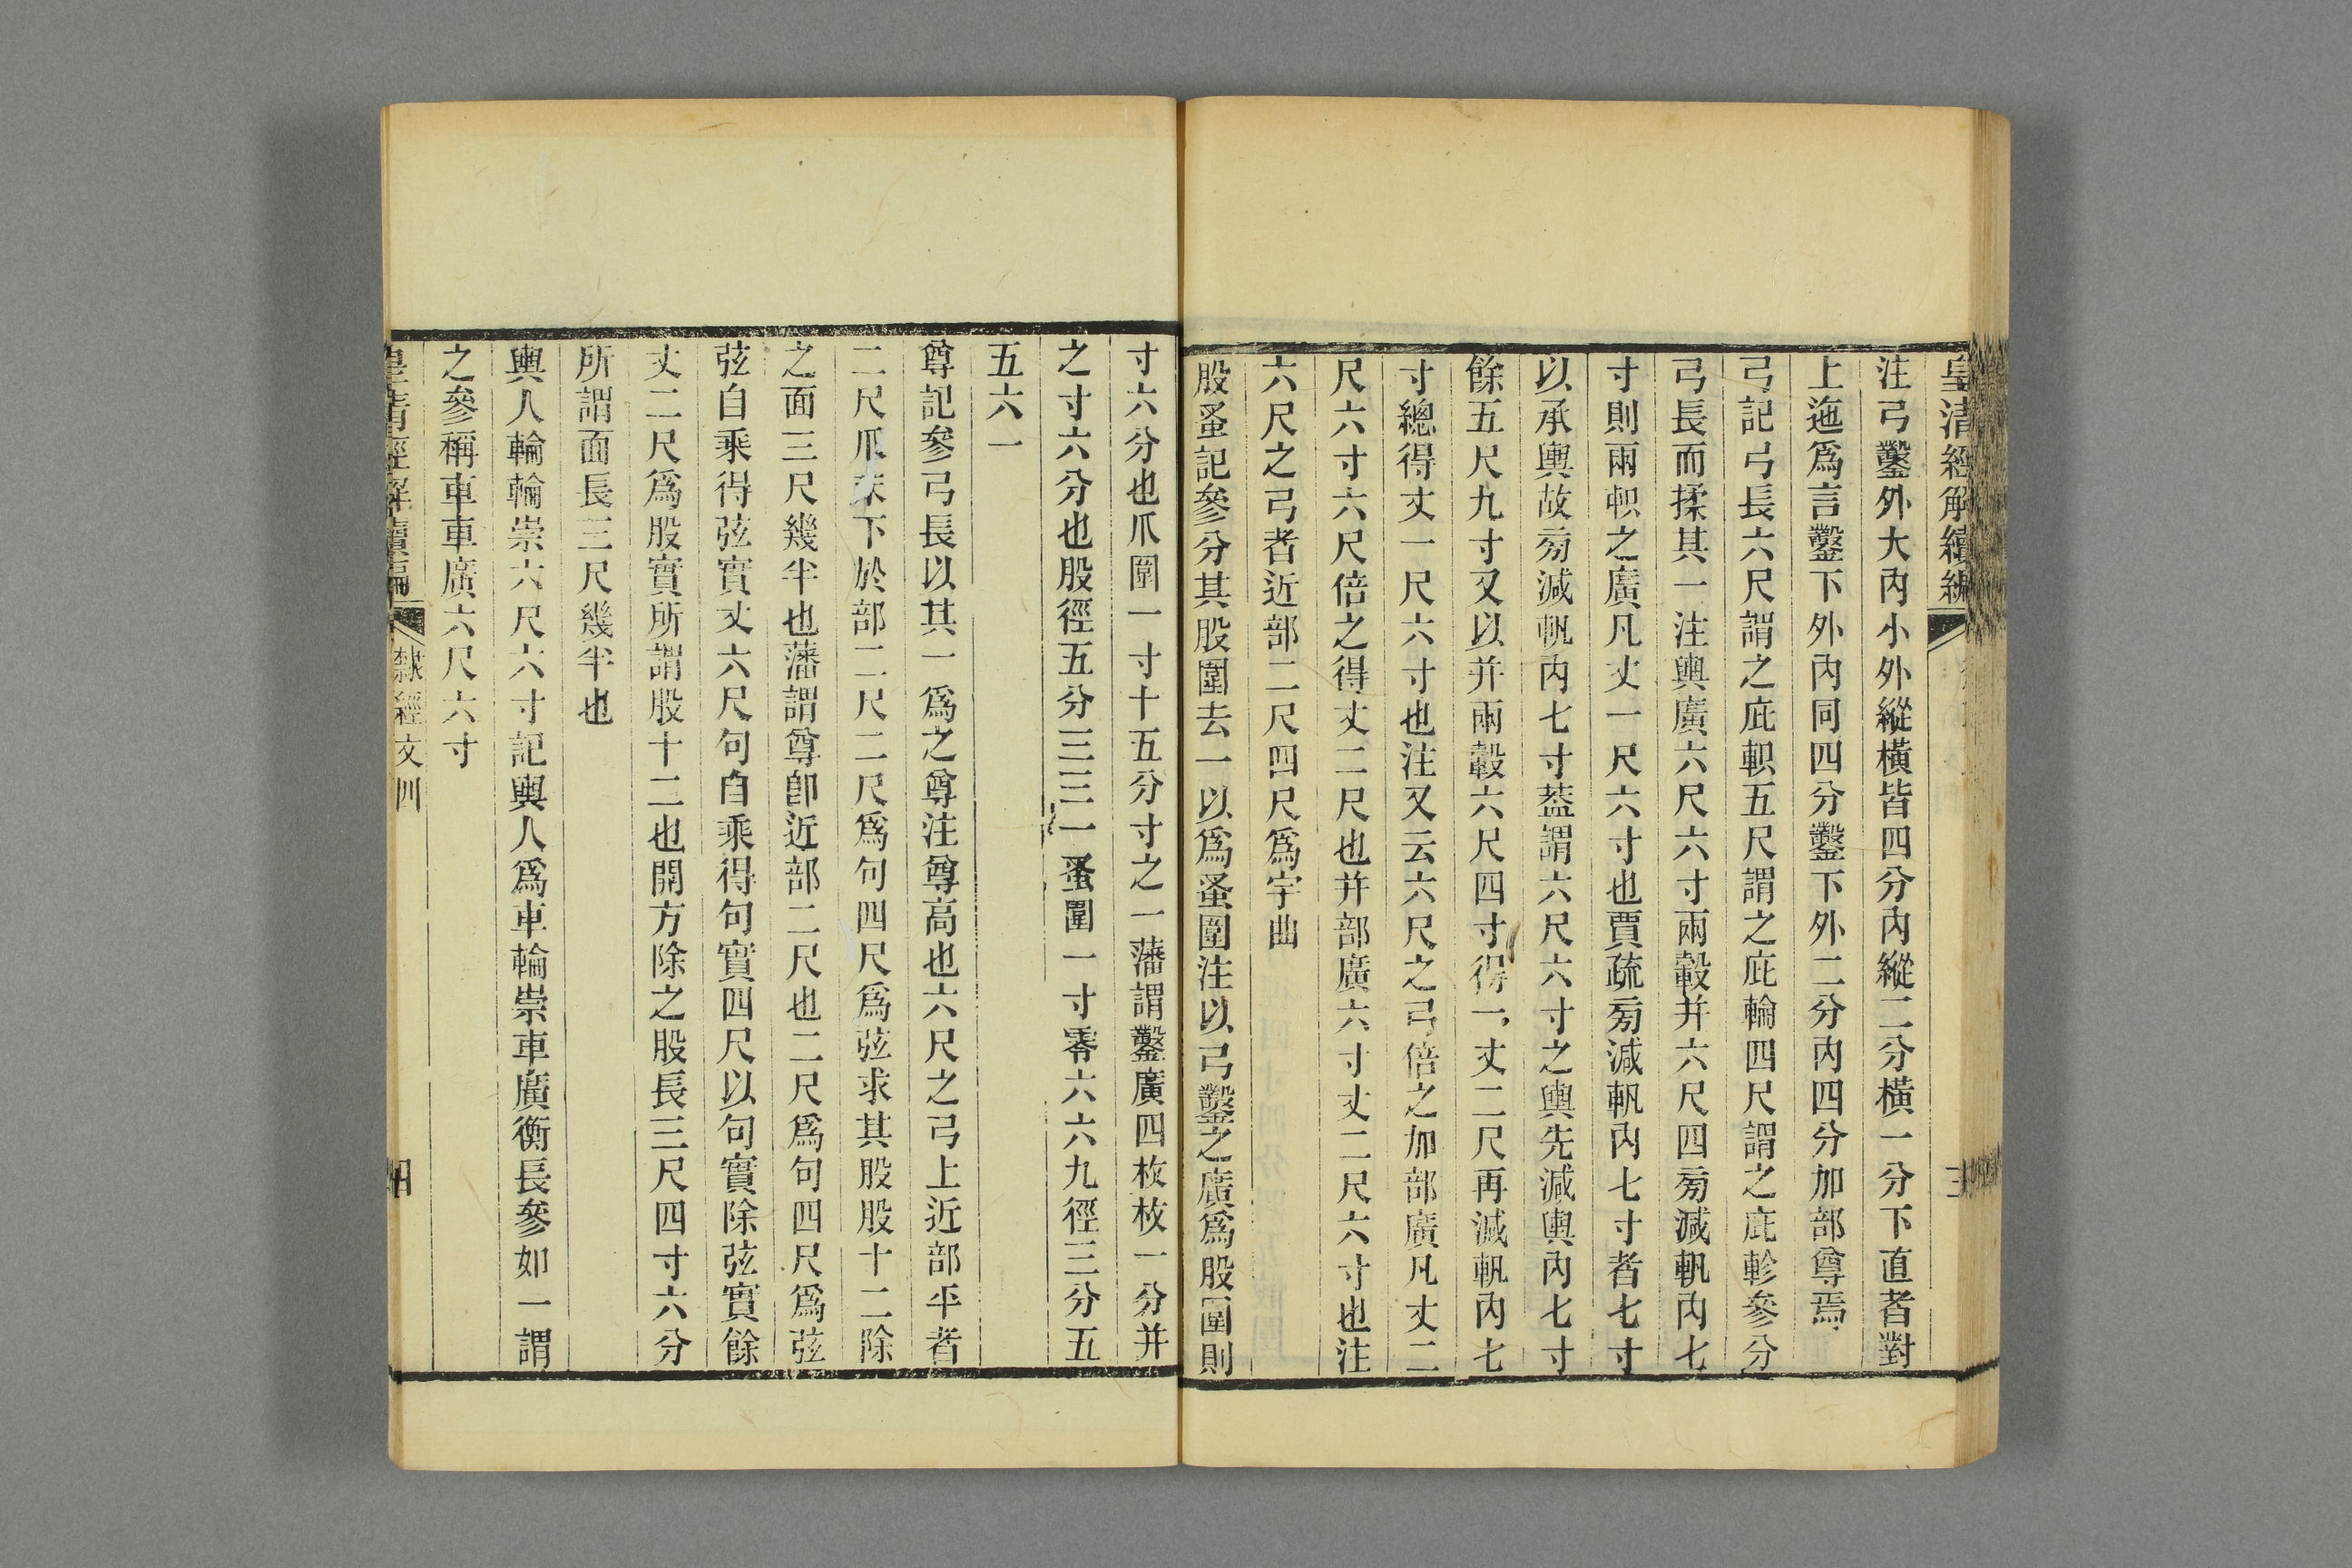 皇清經解續編
注弓鑿外大內小外縱橫皆四分內縱二分橫一分下直者對
上迤爲言鑿下外內同四分鑿下外二分內四分加部尊焉
弓記弓長六尺謂之庇軹五尺謂之庇輪四尺謂之庇軫參分
弓長而揉其一注輿廣六尺六寸兩轂并六尺四旁減軓內七
寸則兩軹之廣凡丈一尺六寸也賈疏旁減軓內七寸者七寸
以承輿故旁減軓內七寸葢謂六尺六寸之輿先減輿內七寸
餘五尺九寸又以并兩轂六尺四寸得一丈二尺再減軓內七
寸總得丈一尺六寸也注又云六尺之弓倍之加部廣凡丈二
尺六寸六尺倍之得丈二尺也并部廣六寸丈二尺六寸也注
六尺之弓者近部二尺四尺爲宇曲
股蚤記參分其股圍去一以爲蚤圍注以弓鑿之廣爲股圍則
寸六分也爪圍一寸十五分寸之一藩謂鑿廣四枚枚一分并
之寸六分也股徑五分三三一蚤圍一寸零六六九徑三分五
五六一
尊記參弓長以其一爲之尊注尊高也六尺之弓上近部平者
二尺爪末下於部二尺二尺爲句四尺爲弦求其股股十二除
之面三尺幾半也藩謂尊卽近部二尺也二尺爲句四尺爲弦
弦自乘得弦實丈六尺句自乘得句實四尺以句實除弦實餘
丈二尺爲股實所謂股十二也開方除之股長三尺四寸六分
所謂面長三尺幾半也
輿人輪輪崇六尺六寸記輿人爲車輪崇車廣衡長參如一謂
之參稱車車廣六尺六寸
皇清經解續編 隸經文四 四